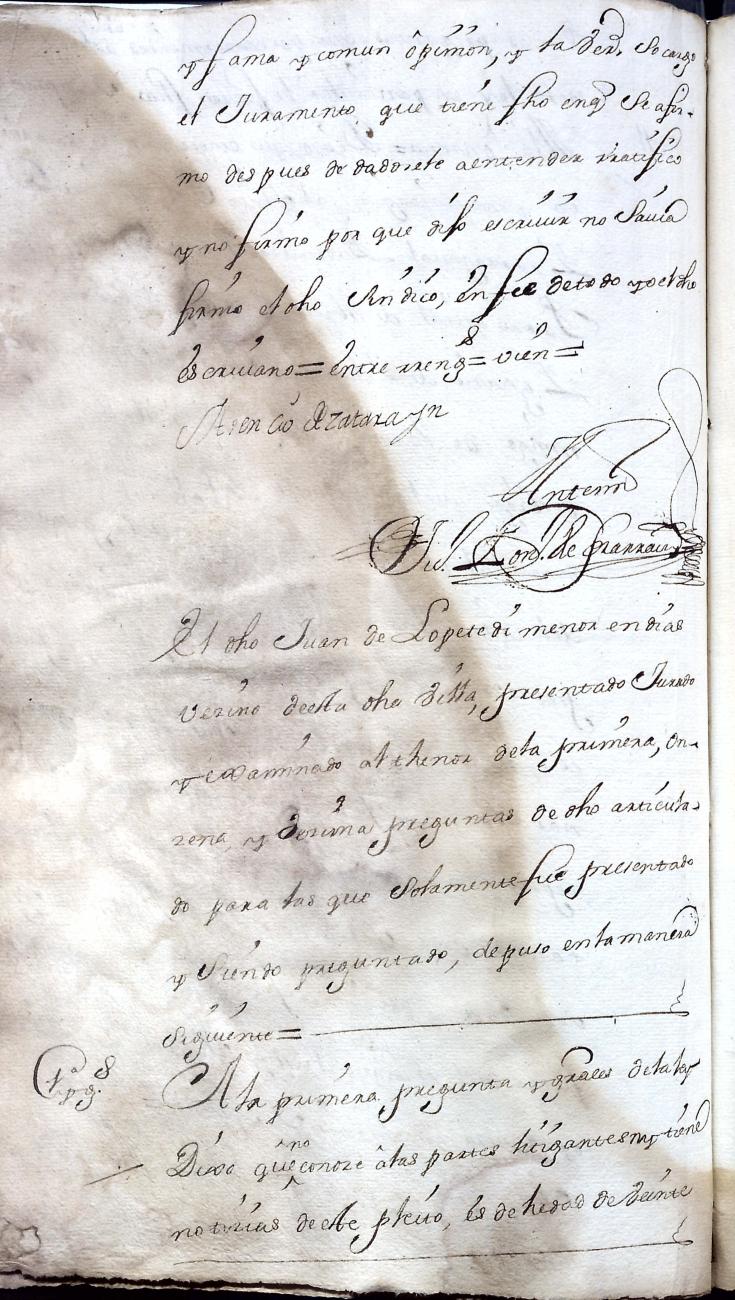 y fama y comun ôpinion, y la Verd. So cargo
el Juramento que tiene fho enq̃ Se afir-
mo despues de dadosele a entender rratifico
y no firmo por que dijo escriuir no Sauia
firmo el dho Sindico, en fee de todo yo el dho
escriuano = entre rreng.s = vien =
Asencio de Zatarayn
Antemi
El dho Juan de Lopetedi menor en dias
Vezino desta dha Villa, presentado Jurado
y examinado al thenor de la primera, on-
zena, y dezima preguntas de dho articula-
do para las que Solamente fue presentado
y Siendo preguntado, depuso en la manera
Siguiente =
1ª pg.s
A la primera pregunta y grâles de la ley
Dixo que no conoze â las partes litigantes ny tiene
notizias de este pleito, es de hedad de Veinte